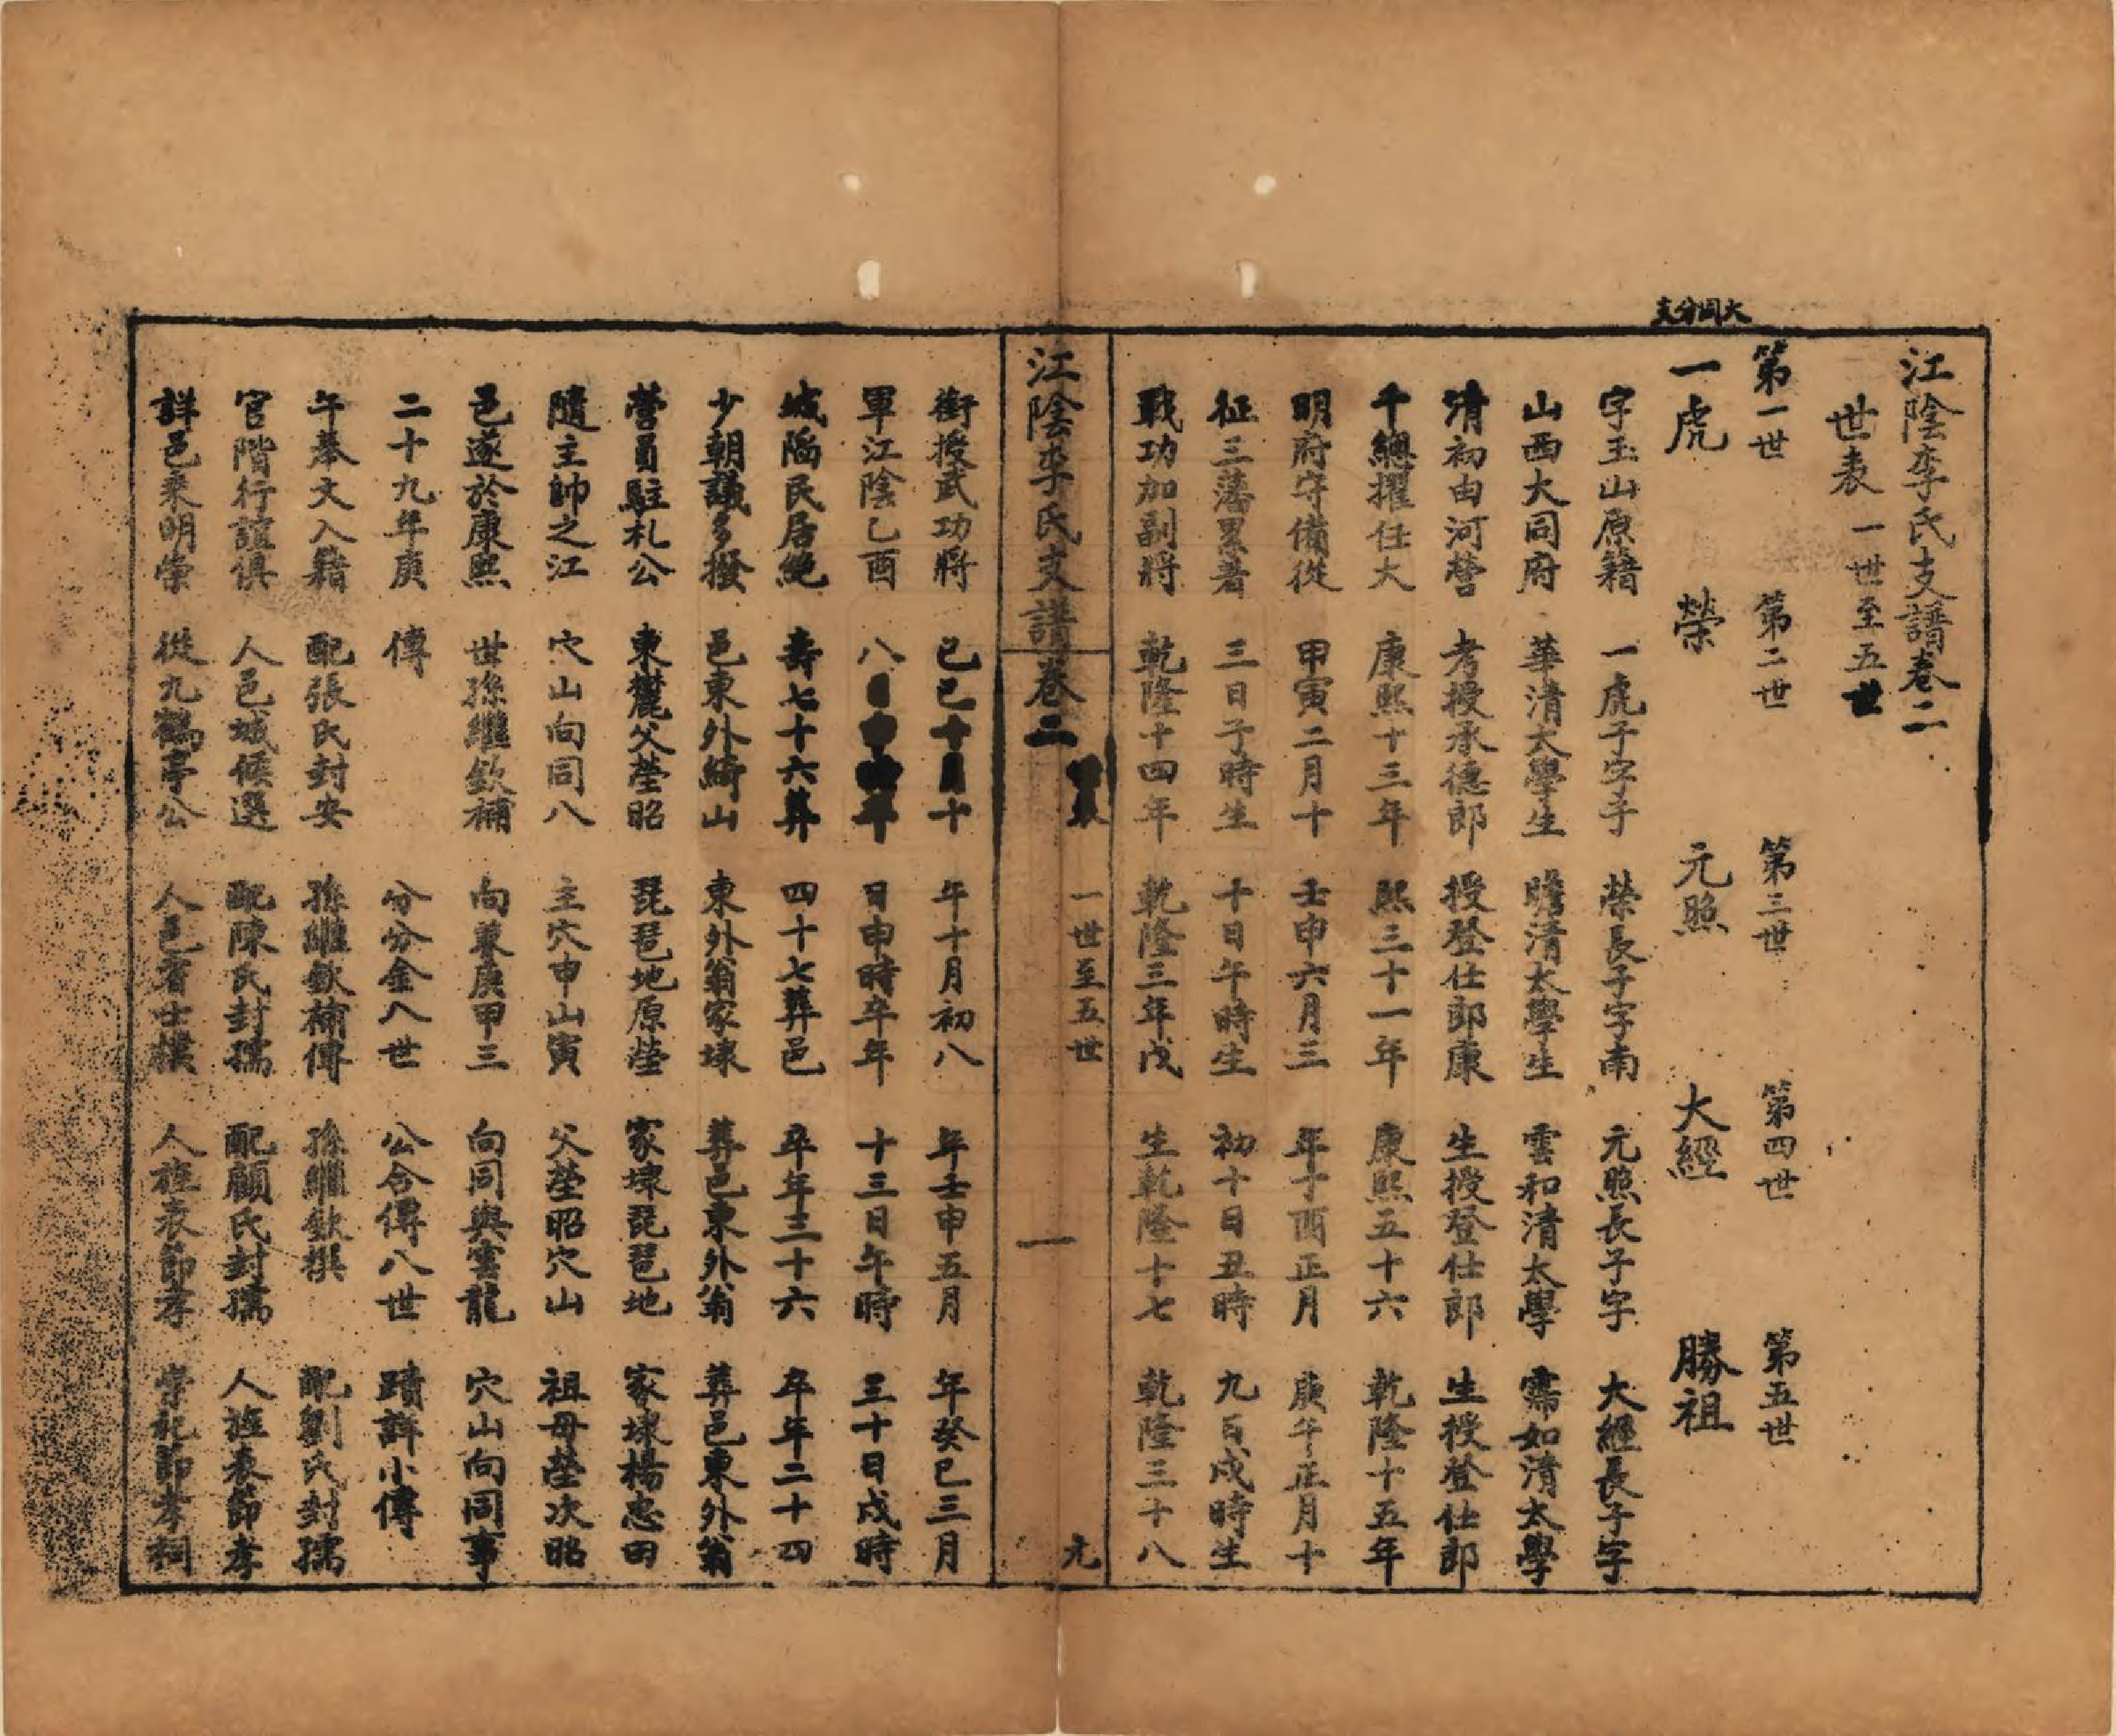 大同分支
江陰李氏支譜卷二
世表 一世至五世
第一世 第二世 第三世 第四世 第五世
一虎 榮 元照 大經 勝祖
字玉山原籍 一虎子字手 榮長子字南 元照長子字 大經長子字
山西大同府 華清太學生 瞻清太學生 雲和清太學 霈如清太學
清初由河營 考授承德郎 授登仕郎康 生授登仕郎 生授登仕郎
千總擢任大 康熙十三年 熙三十一年 康熙五十六 乾隆十五年
明府守備從 甲寅二月十 壬申六月三 年丁酉正月 庚午正月十
征三藩累著 三日子時生 十日午時生 初十日丑時 九日戌時生
戰功加副將 乾隆十四年 乾隆三年戊 生乾隆十七 乾隆三十八
江陰李氏支譜卷二 世表 一世至五世 一 元
銜授武功將 己巳十月十 午十月初八 年壬申五月 年癸巳三月
軍江陰乙酉 八日申時卒年 十三日午時 三十日戌時
城陷民居絶 壽七十六葬 四十七葬邑 卒年三十六 卒年二十四
少朝議多撥 邑東外綺山 東外翁家埭 葬邑東外翁 葬邑東外翁
營員駐札公 東麓父塋昭 琵琶地原塋 家埭琵琶地 家埭楊忠田
隨主帥之江 穴山向同八 主穴申山寅 父塋昭穴山 祖母塋次昭
邑遂於康熙 世孫繼欽補 向兼庚甲三 向同與雲龍 穴山向同事
二十九年庚 傳 分分金八世 公合傳八世 蹟詳小傳
午奉文入籍 配張氏封安 孫繼欽補傳 孫繼欽撰 配劉氏封孺
官階行誼俱 人邑城候選 配陳氏封孺 配顧氏封孺 人旌表節孝
詳邑乘明崇 從九鶴亭公 人邑耆士樸 人旌表節孝 崇祀節孝祠